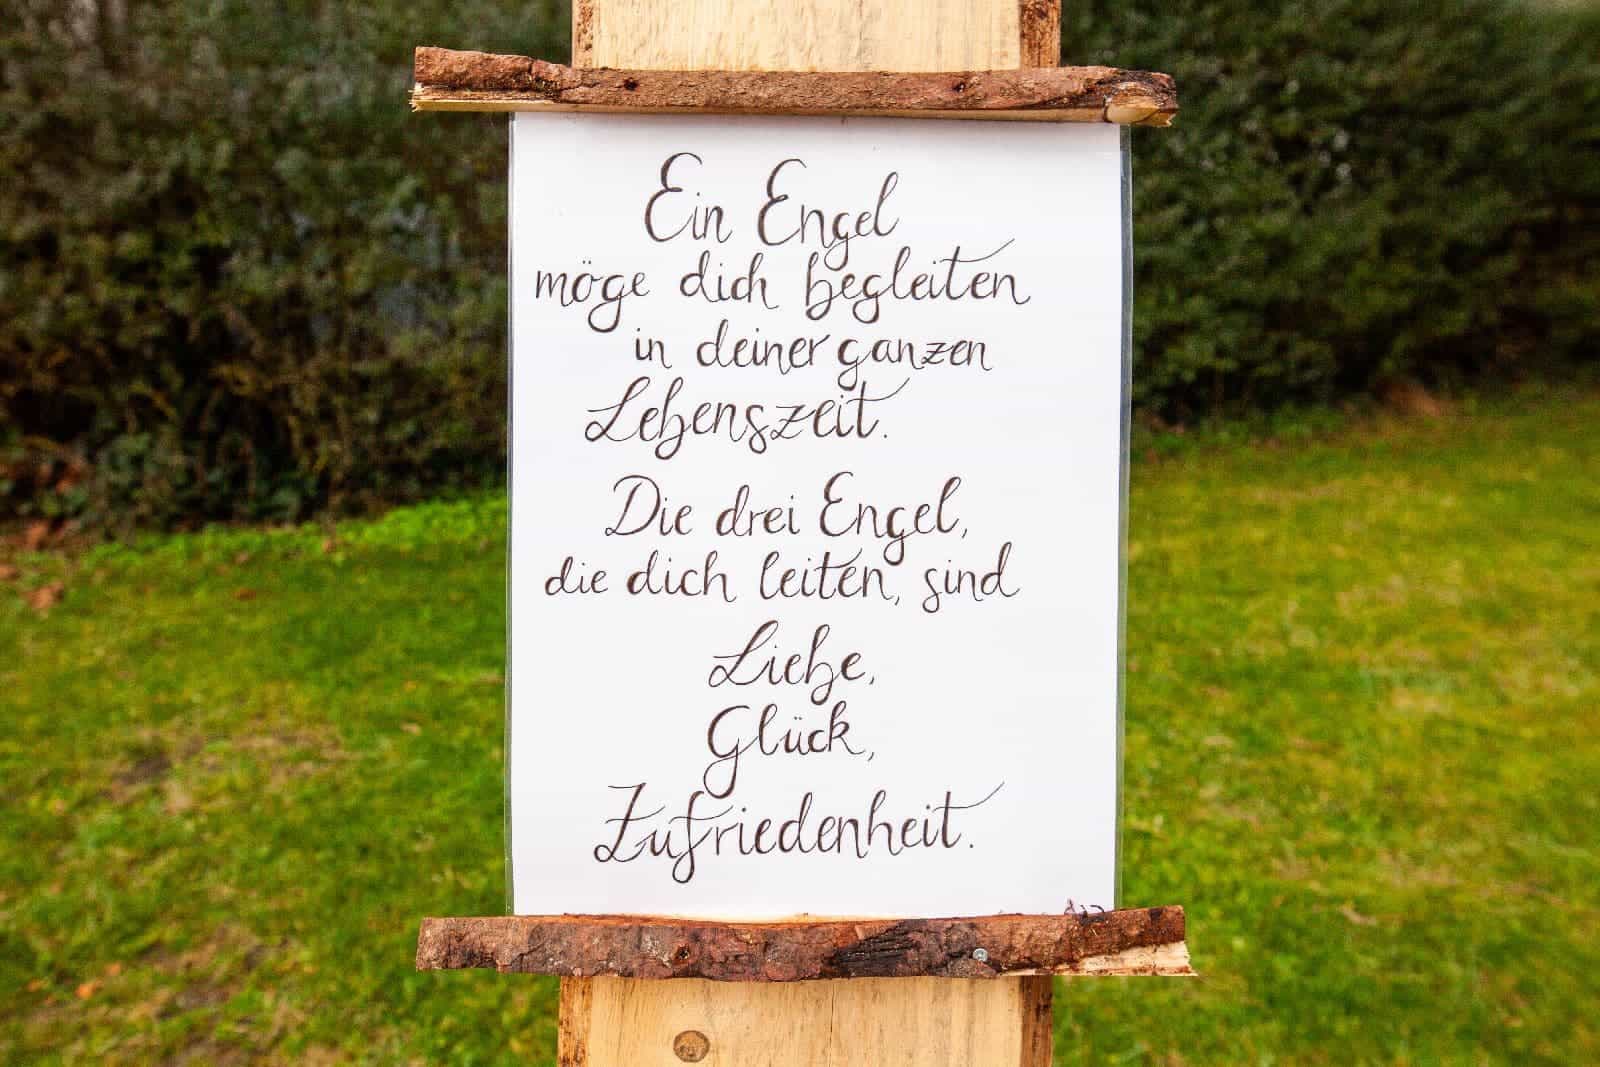 Ein Engel
möge dich begleiten
in deiner ganzen
Lebenszeit.
Die drei Engel,
die dich leiten, sind
Liebe,
Glück,
Zufriedenheit.